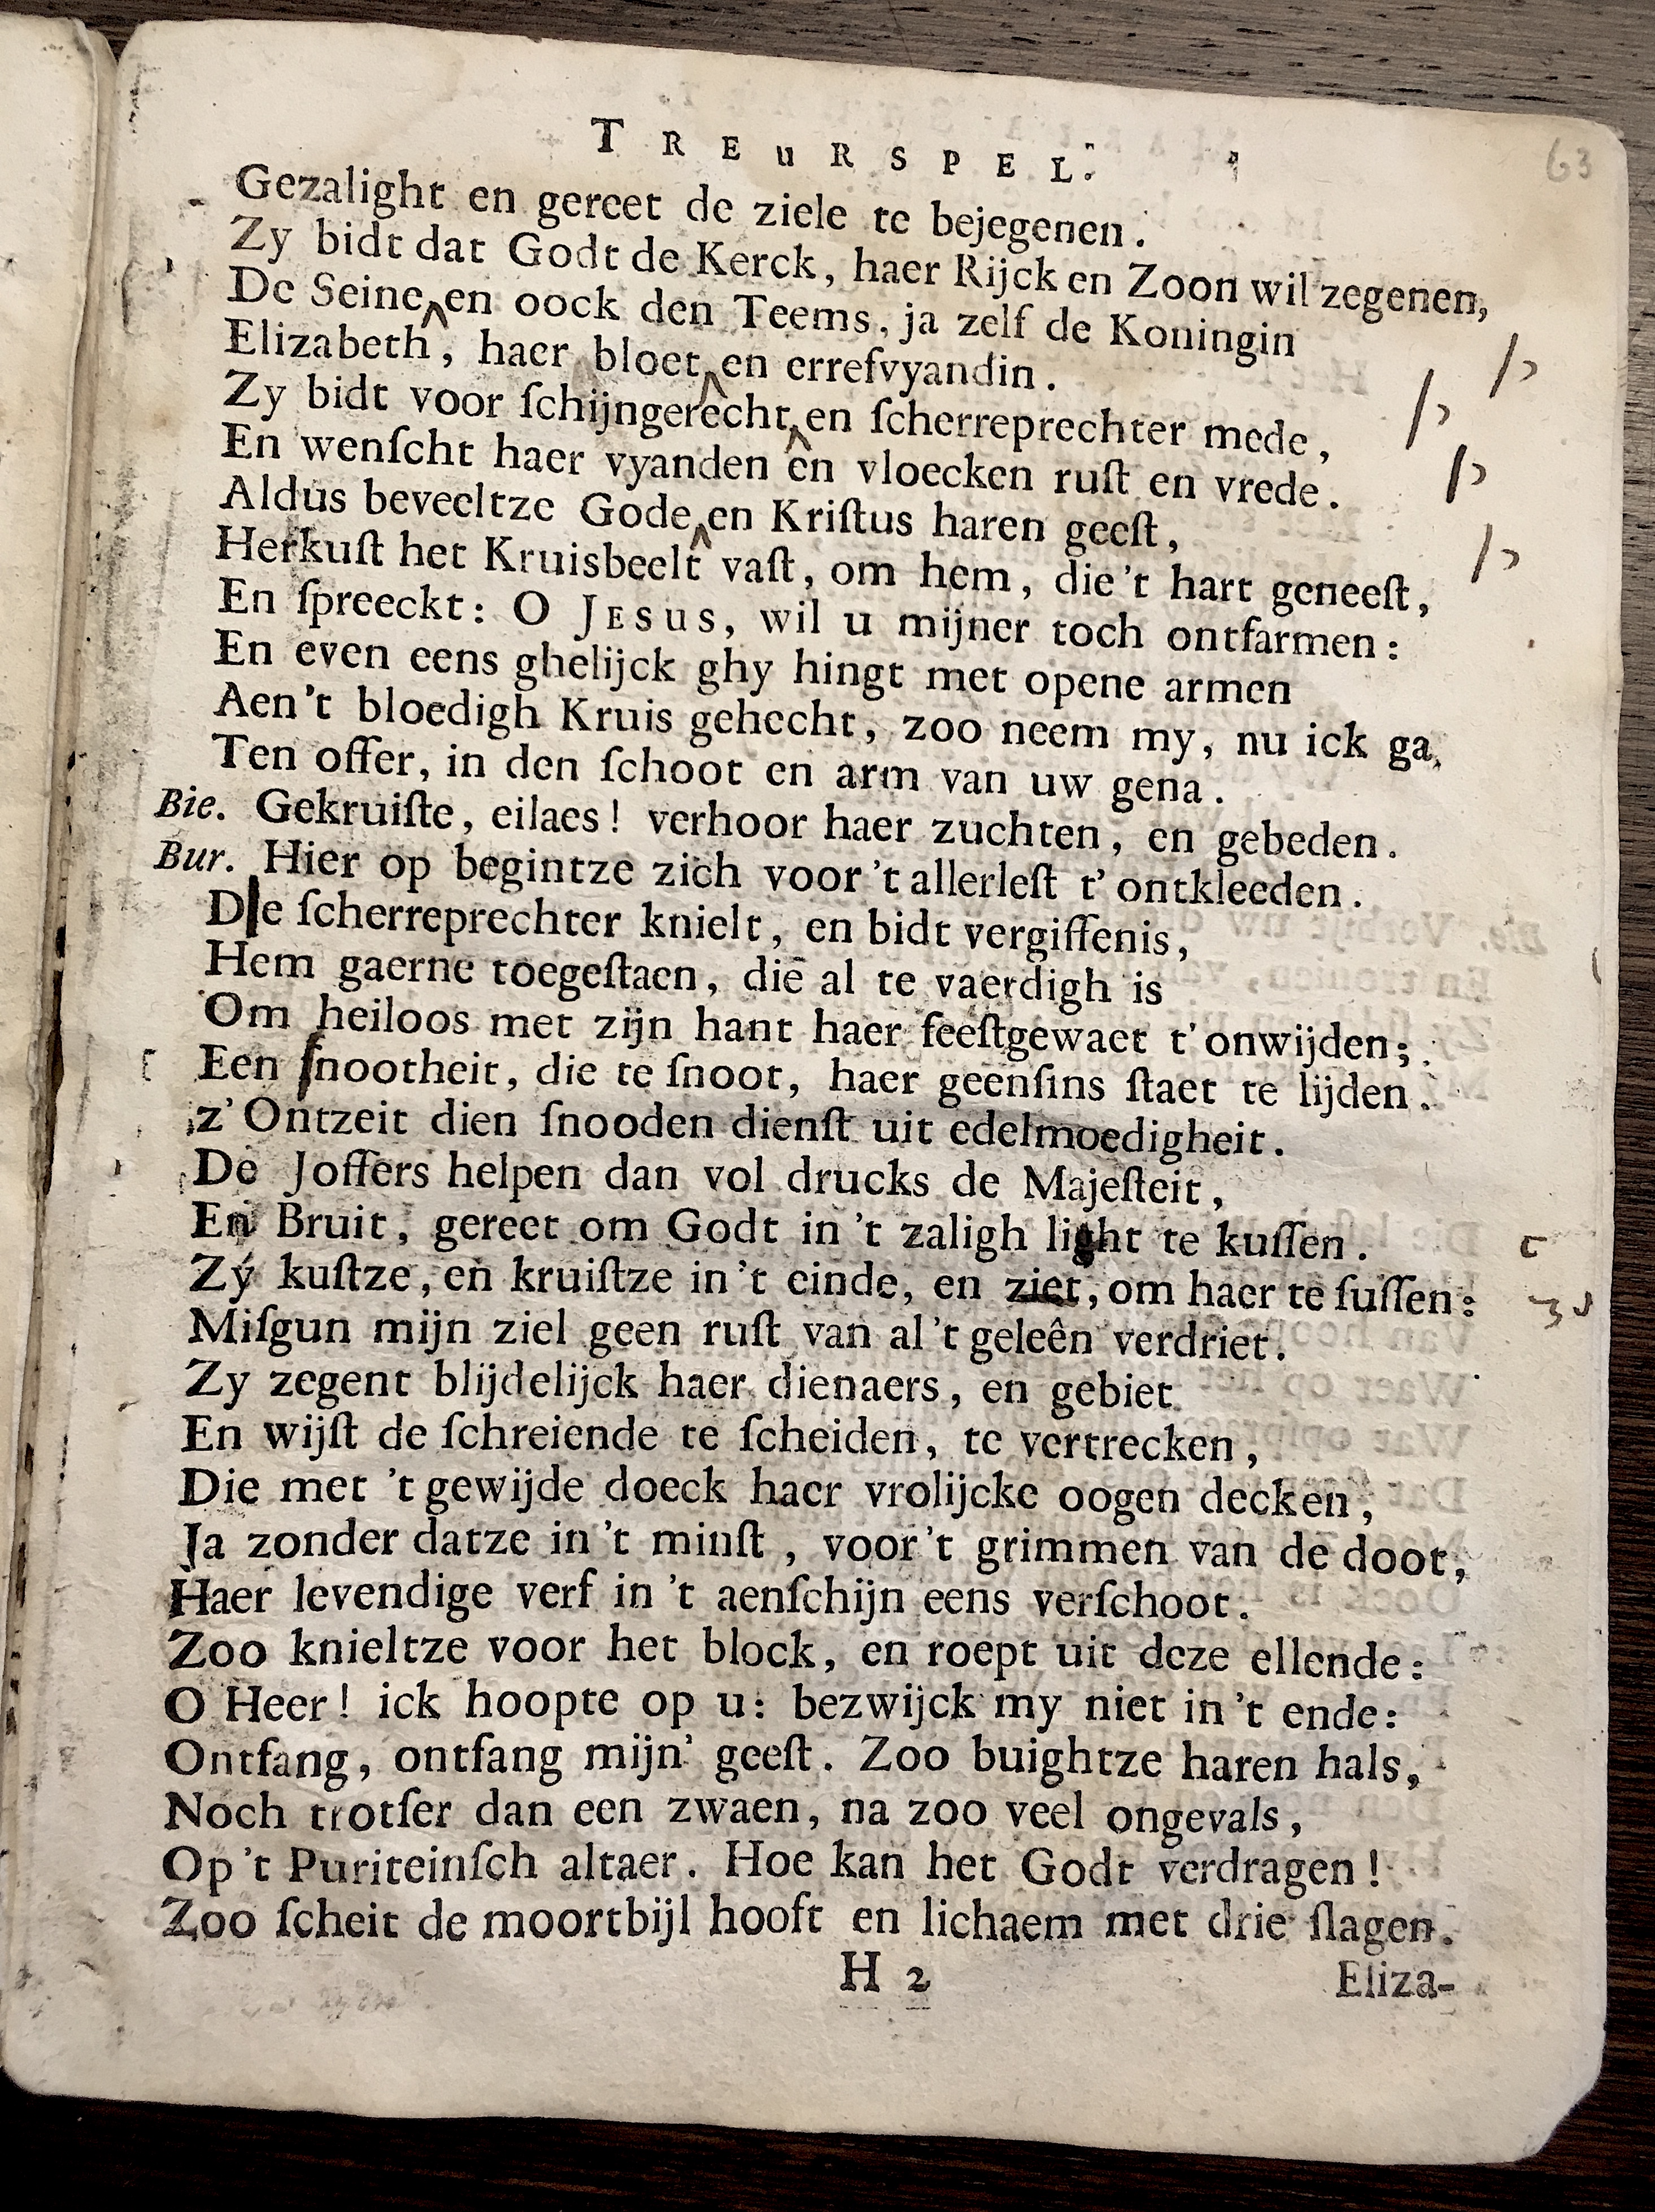 TREURSPEL.
63
Gezalight en gereet de ziele te bejegenen.
Zy bidt dat Godt de Kerck, haer Rijck en Zoon wil zegenen,
De Seine en oock den Teems, ja zelf de Koningin
Elizabeth, haer bloet en errefvyandin.
Zy bidt voor ſchijngerecht en ſcherreprechter mede,
En wenſcht haer vyanden en vloecken ruſt en vrede.
Aldus beveeltze Gode en Kriſtus haren geeſt,
Herkuſt het Kruisbeelt vaſt, om hem, die 't hart geneeſt,
En ſpreeckt: O JESUS, wil u mijner toch ontfarmen:
En even eens ghelijck ghy hingt met opene armen
Aen 't bloedigh Kruis gehecht, zoo neem my, nu ick ga,
Ten offer, in den ſchoot en arm van uw gena.
Bie. Gekruiſte, eilaes! verhoor haer zuchten, en gebeden.
Bur. Hier op begintze zich voor 't allerleſt t' ontkleeden.
Die ſcherreprechter knielt, en bidt vergiffenis,
Hem gaerne toegeſtaen, die al te vaerdigh is
Om heiloos met zijn hant haer feeſtgewaet t' onwijden;
Een ſnootheit, die te ſnoot, haer geenſins ſtaet te lijden.
z' Ontzeit dien ſnooden dienſt uit edelmoedigheit.
De Joffers helpen dan vol drucks de Majeſteit,
En Bruit, gereet om Godt in 't zaligh light te kuſſen.
Zy kuſtze, en kruiſtze in 't einde, en ziet, om haer te ſuſſen:
Miſgun mijn ziel geen ruſt van al 't geleên verdriet.
Zy zegent blijdelijck haer dienaers, en gebiet
En wijſt de ſchreiende te ſcheiden, te vertrecken,
Die met 't gewijde doeck haer vrolijcke oogen decken,
Ja zonder datze in 't minſt, voor 't grimmen van de doot,
Haer levendige verf in 't aenſchijn eens verſchoot.
Zoo knieltze voor het block, en roept uit deze ellende:
O Heer! ick hoopte op u: bezwijck my niet in 't ende:
Ontfang, ontfang mijn' geeſt. Zoo buightze haren hals,
Noch trotſer dan een zwaen, na zoo veel ongevals,
Op 't Puriteinſch altaer. Hoe kan het Godt verdragen!
Zoo ſcheit de moortbijl hooft en lichaem met drie ſlagen.
H 2
Eliza-